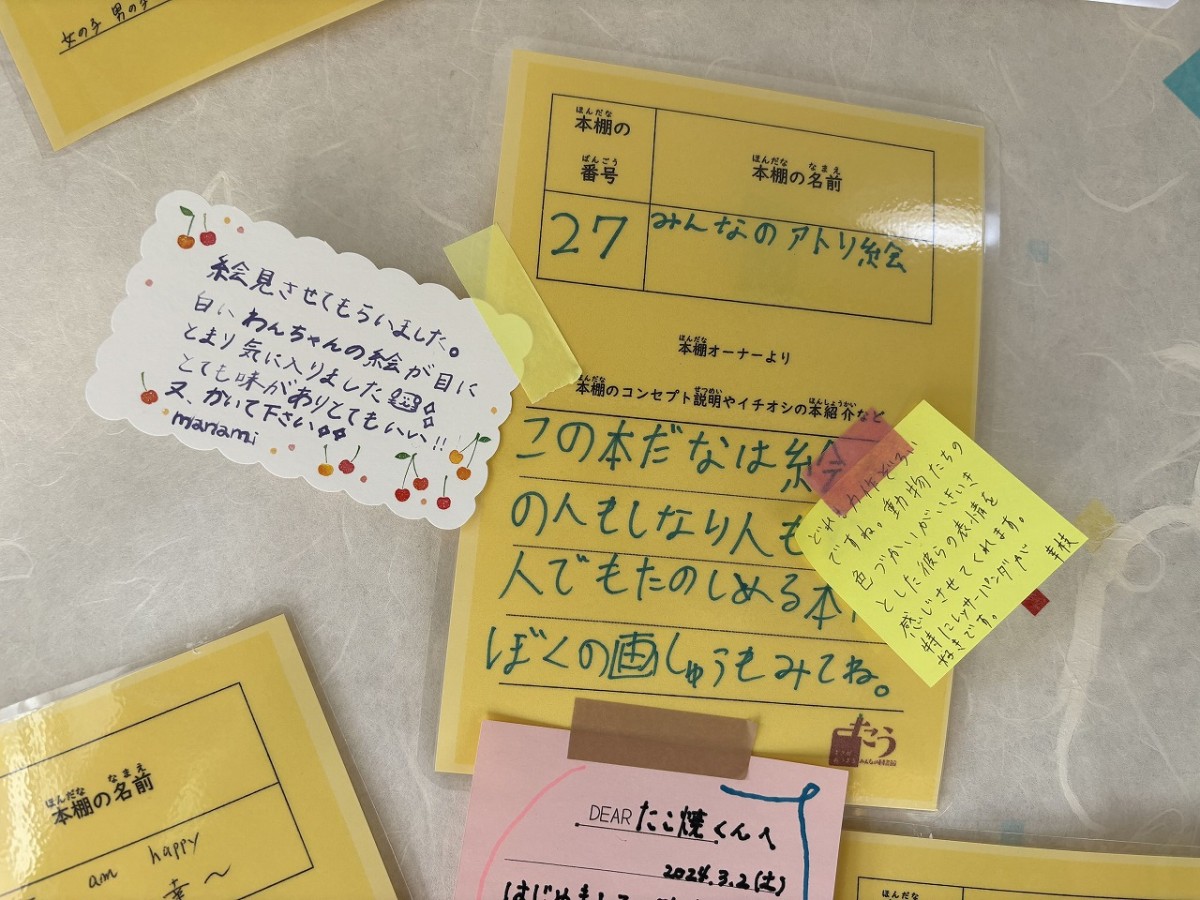 女の子 男の子
ほんだな
本棚の
ばんごう
番号
ほんだな なまえ
本棚の名前
27
みんなのアトリ絵
ほんだな
本棚オーナーより
ほんだな せつめい ほんしょうかい
本棚のコンセプト説明やイチオシの本紹介など
この本だなは絵
の人もしなり人も
人でもたのしめる本
ぼくの画しゅうもみてね。
絵見させてもらいました。
白いわんちゃんの絵が目に
とまり気に入りました
とても味がありとてもいい!!
又、かいて下さい
manami
どれも力作ぞろい
ですね。動物たちの
色づかいがいきいき
とした彼らの表情を
感じさせてくれます。
特にレッサーパンダが
好きです。
幸枝
DEAR たこ焼くんへ
2024.3.2(土)
はじめまして
ほんだな なまえ
本棚の名前
am happy
幸〜
ほんだな